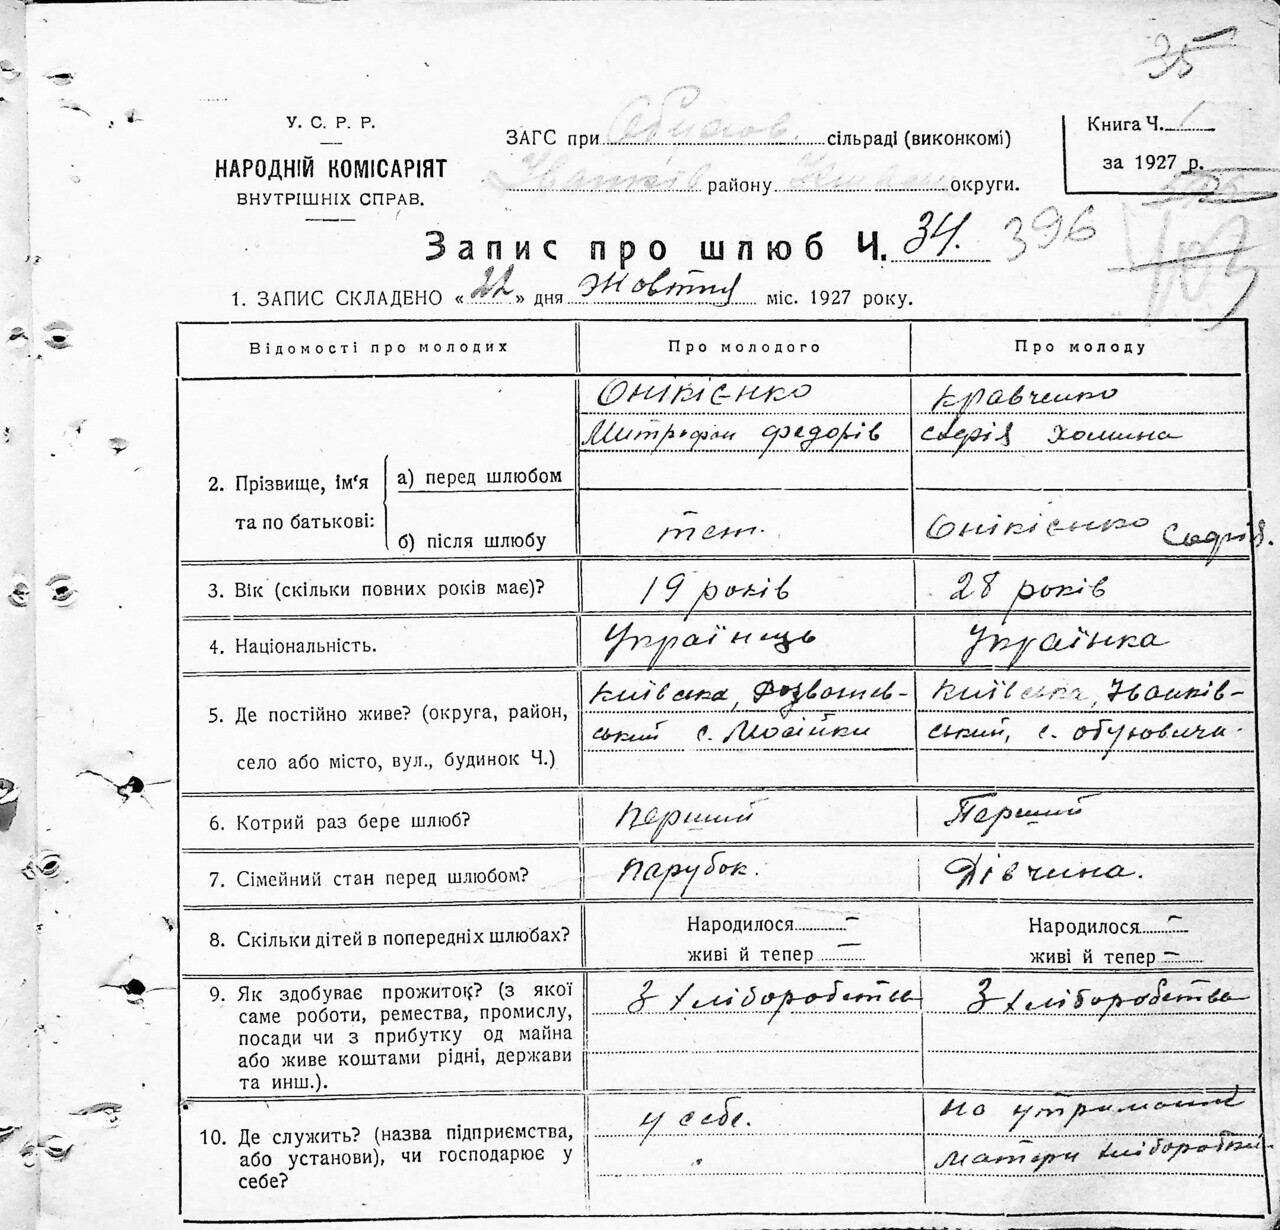 35
У. С. Р. Р.
НАРОДНІЙ КОМІСАРІЯТ
ВНУТРІШНІХ СПРАВ.
ЗАГС при Обухов. сільраді (виконкомі)
Іванків району округи.
Книга Ч. 1
за 1927 р.
Запис про шлюб Ч. 34. 396
1. ЗАПИС СКЛАДЕНО «22» дня Жовтня міс. 1927 року.
Відомості про молодих Про молодого Про молоду
2. Прізвище, ім'я та по батькові:
а) перед шлюбом
Онікієнко
Митрофан Федорів
Кравченко
Софія Хомина
б) після шлюбу
теж.
Онікієнко Софія.
3. Вік (скільки повних років має)? 19 років 28 років
4. Національність. Українець Українка
5. Де постійно живе? (округа, район,
село або місто, вул., будинок Ч.)
Київська, Розважев-
ський с. Мосійки
Київська, Іванків-
ський, с. Обуховичи.
6. Котрий раз бере шлюб? Перший Перший
7. Сімейний стан перед шлюбом? Парубок. Дівчина.
8. Скільки дітей в попередніх шлюбах?
Народилося –
живі й тепер –
Народилося –
живі й тепер –
9. Як здобуває прожиток? (з якої
саме роботи, ремества, промислу,
посади чи з прибутку од майна
або живе коштами рідні, держави
та инш.).
З хліборобства
З хліборобства
10. Де служить? (назва підприємства,
або установи), чи господарює у
себе?
у себе.
на утриманні
матери хліборобки.